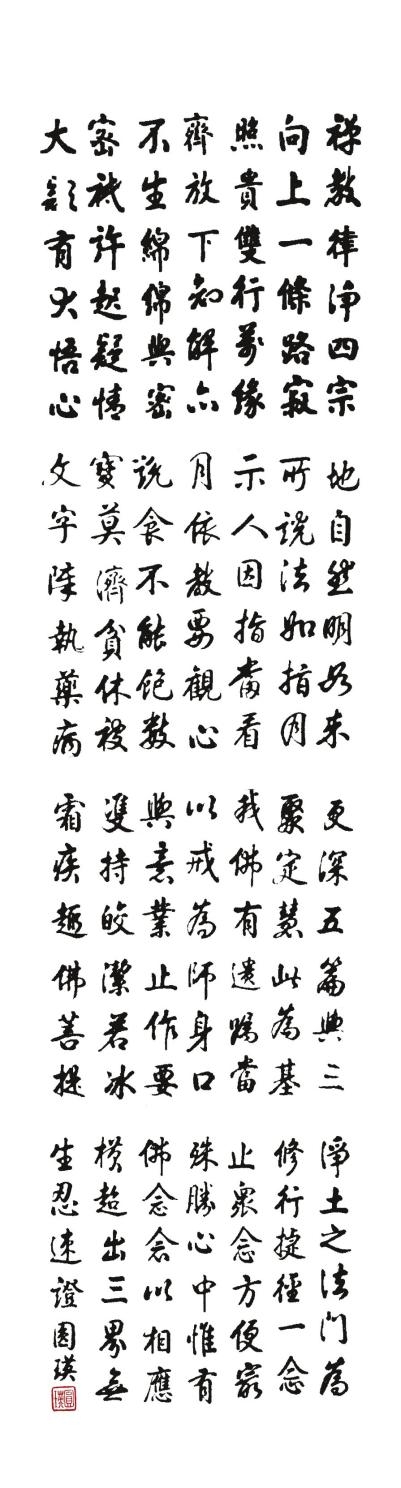 禅教律淨四宗
向上一條路寂
照貴雙行萬緣
齊放下知解亦
不生綿綿與密
密祇許起疑情
大疑有大悟心
地自然明如来
所説法如指月
示人因指當看
月依教要觀心
説食不能飽数
寶莫濟貧休被
文字障執藥病
更深五篇與三
聚定慧此為基
我佛有遺囑當
以戒為師身口
與意業止作要
雙持皎潔若冰
霜疾趣佛菩提
淨土之法門為
修行捷徑一念
止眾念方便最
殊勝心中惟有
佛念念以相應
橫超出三界無
生忍速證圓瑛
圓瑛